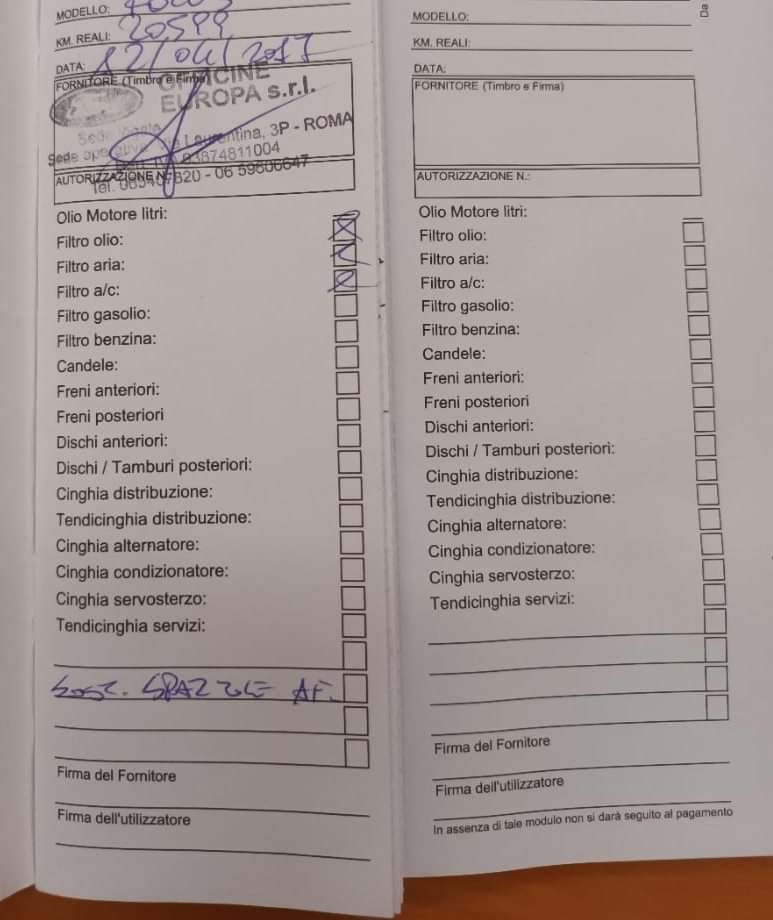 MODELLO:
KM. REALI: 20599
DATA: 12/04/2017
FORNITORE (Timbro e Firma)
OFFICINE
EUROPA s.r.l.
Laurentina, 3P - ROMA
Sede operativa
03874811004
AUTORIZZAZIONE N.:
Tel. - 06 59606647
Olio Motore litri:
Filtro olio:
Filtro aria:
Filtro a/c:
Filtro gasolio:
Filtro benzina:
Candele:
Freni anteriori:
Freni posteriori
Dischi anteriori:
Dischi / Tamburi posteriori:
Cinghia distribuzione:
Tendicinghia distribuzione:
Cinghia alternatore:
Cinghia condizionatore:
Cinghia servosterzo:
Tendicinghia servizi:
SOST. SPAZZOLE
Firma del Fornitore
Firma dell'utilizzatore
MODELLO:
KM. REALI:
DATA:
FORNITORE (Timbro e Firma)
AUTORIZZAZIONE N.:
Olio Motore litri:
Filtro olio:
Filtro aria:
Filtro a/c:
Filtro gasolio:
Filtro benzina:
Candele:
Freni anteriori:
Freni posteriori
Dischi anteriori:
Dischi / Tamburi posteriori:
Cinghia distribuzione:
Tendicinghia distribuzione:
Cinghia alternatore:
Cinghia condizionatore:
Cinghia servosterzo:
Tendicinghia servizi:
Firma del Fornitore
Firma dell'utilizzatore
In assenza di tale modulo non si darà seguito al pagamento
Da